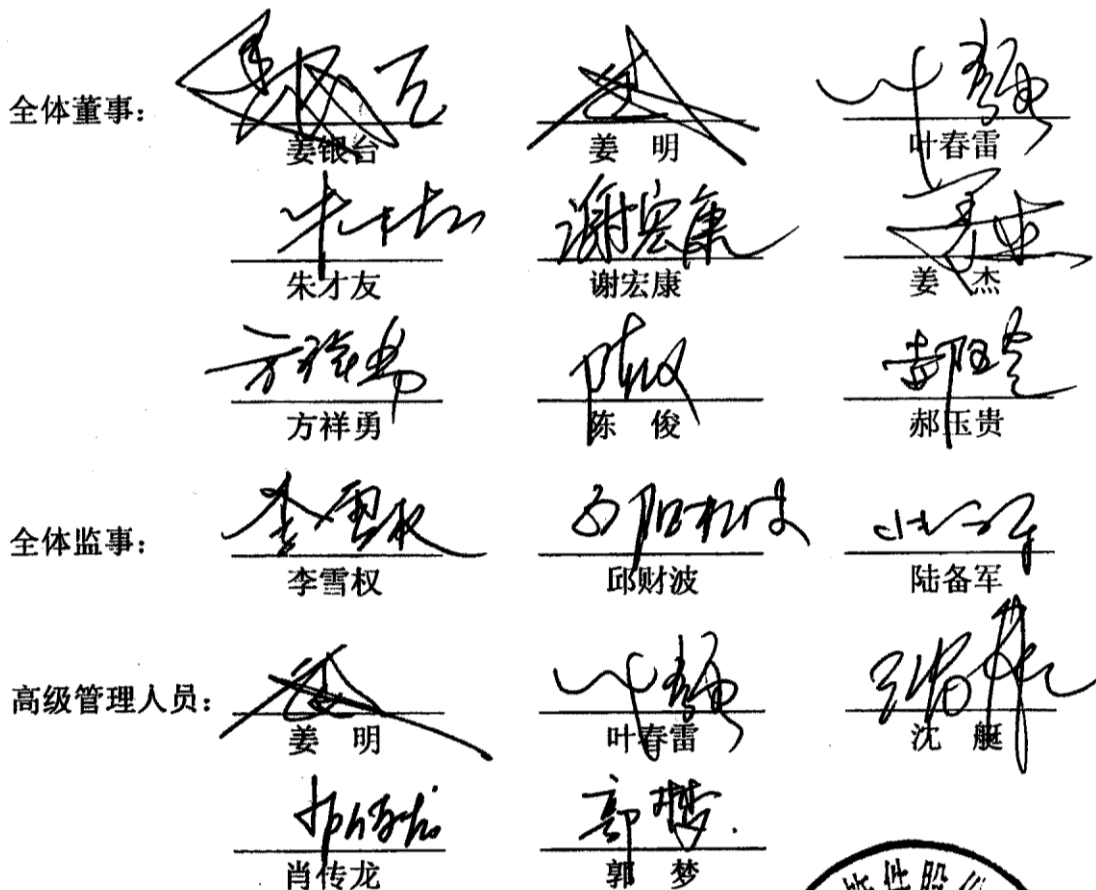 全体董事：
姜银台 姜 明 叶春雷
朱才友 谢宏康 姜 杰
方祥勇 陈 俊 郝玉贵
全体监事：
李雪权 邱财波 陆备军
高级管理人员：
姜 明 叶春雷 沈 艇
肖传龙 郭 梦
件股份